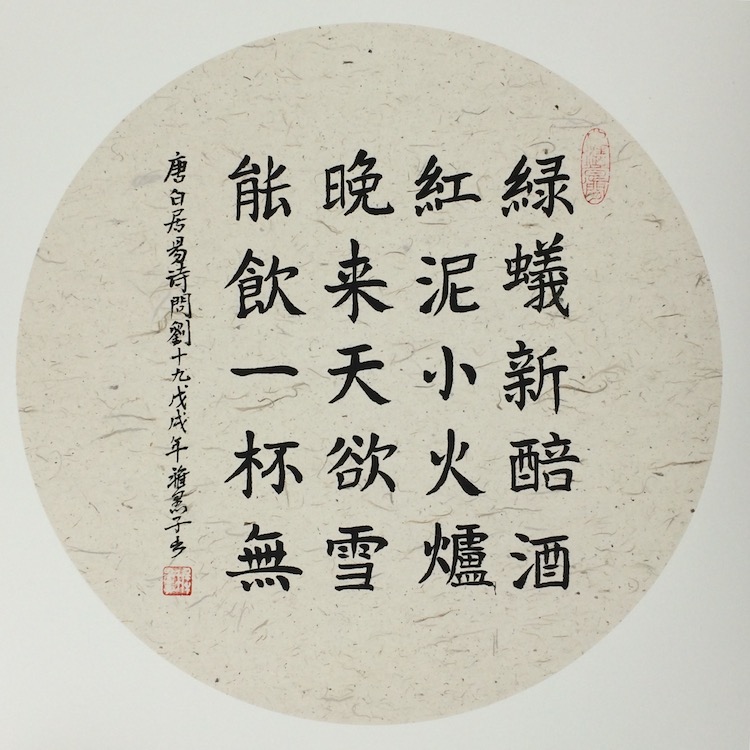 緑蟻新醅酒
紅泥小火爐
晚来天欲雪
能飲一杯無
唐白居易诗問劉十九戊戌年雅墨子书